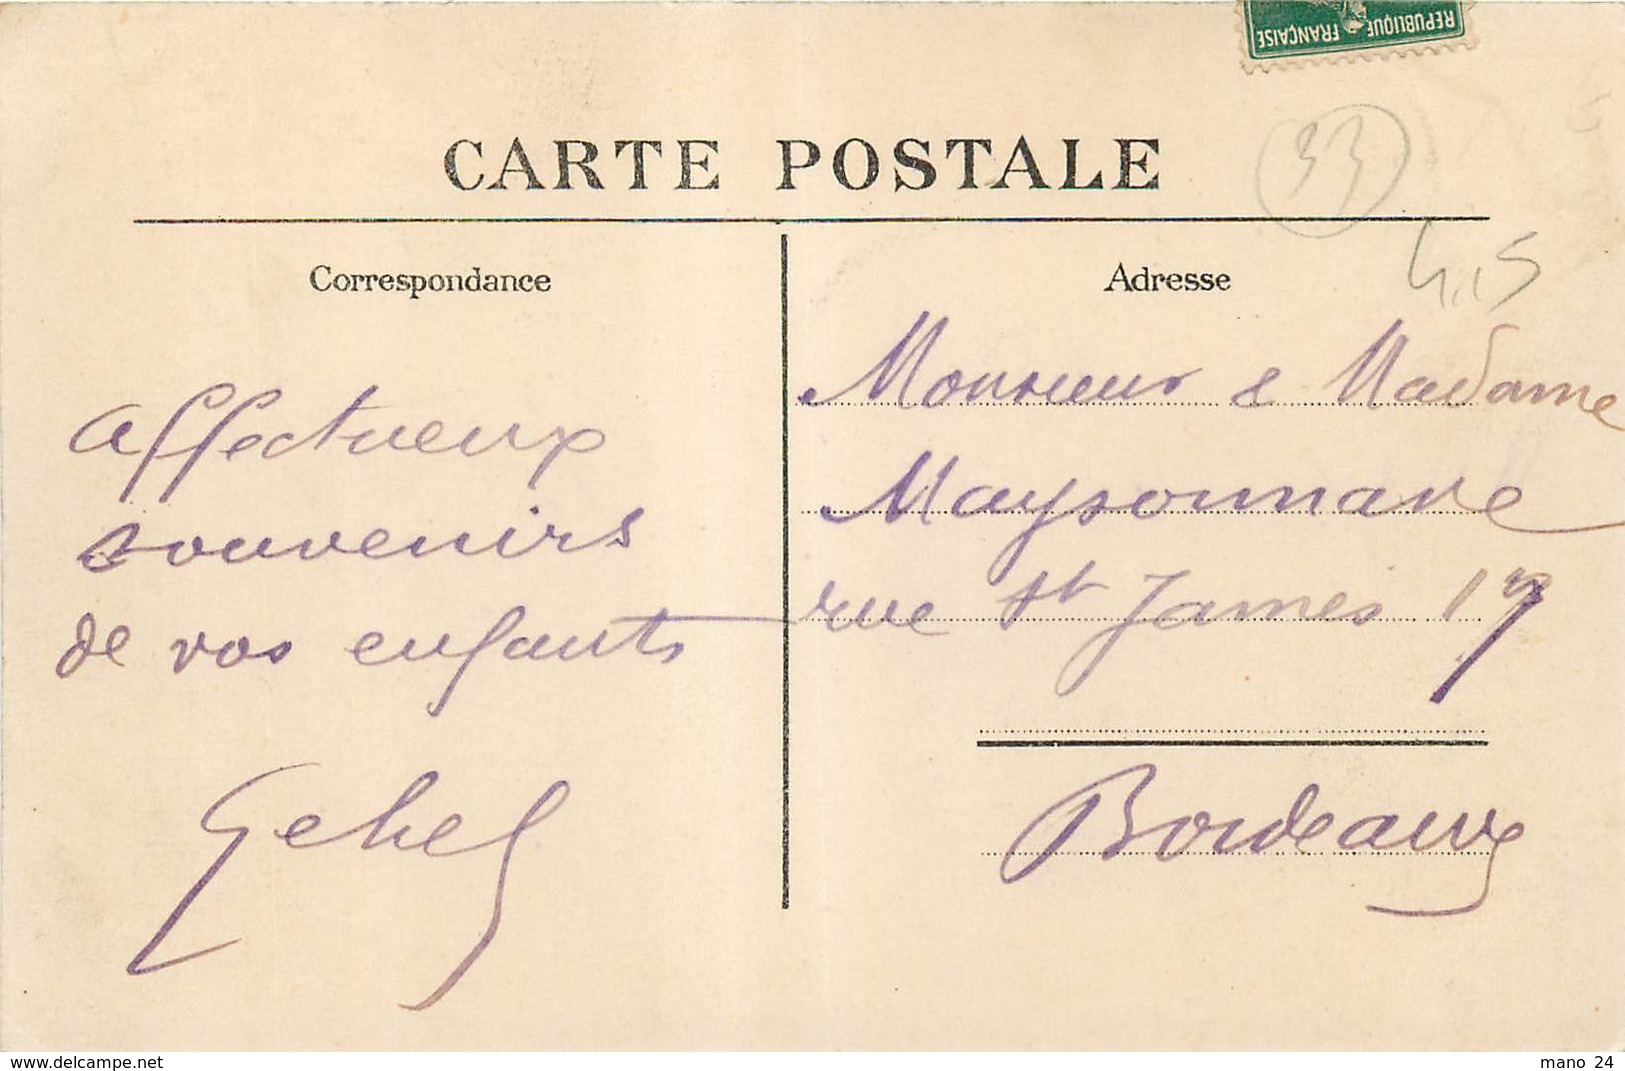 RÉPUBLIQUE FRANÇAISE
CARTE POSTALE
33
4,15
Correspondance
Adresse
Affectueux
souvenirs
de vos enfants
Gehel
Monsieur & Madame
Maysonnave
rue St James 17
Bordeaux
www.delcampe.net
mano 24